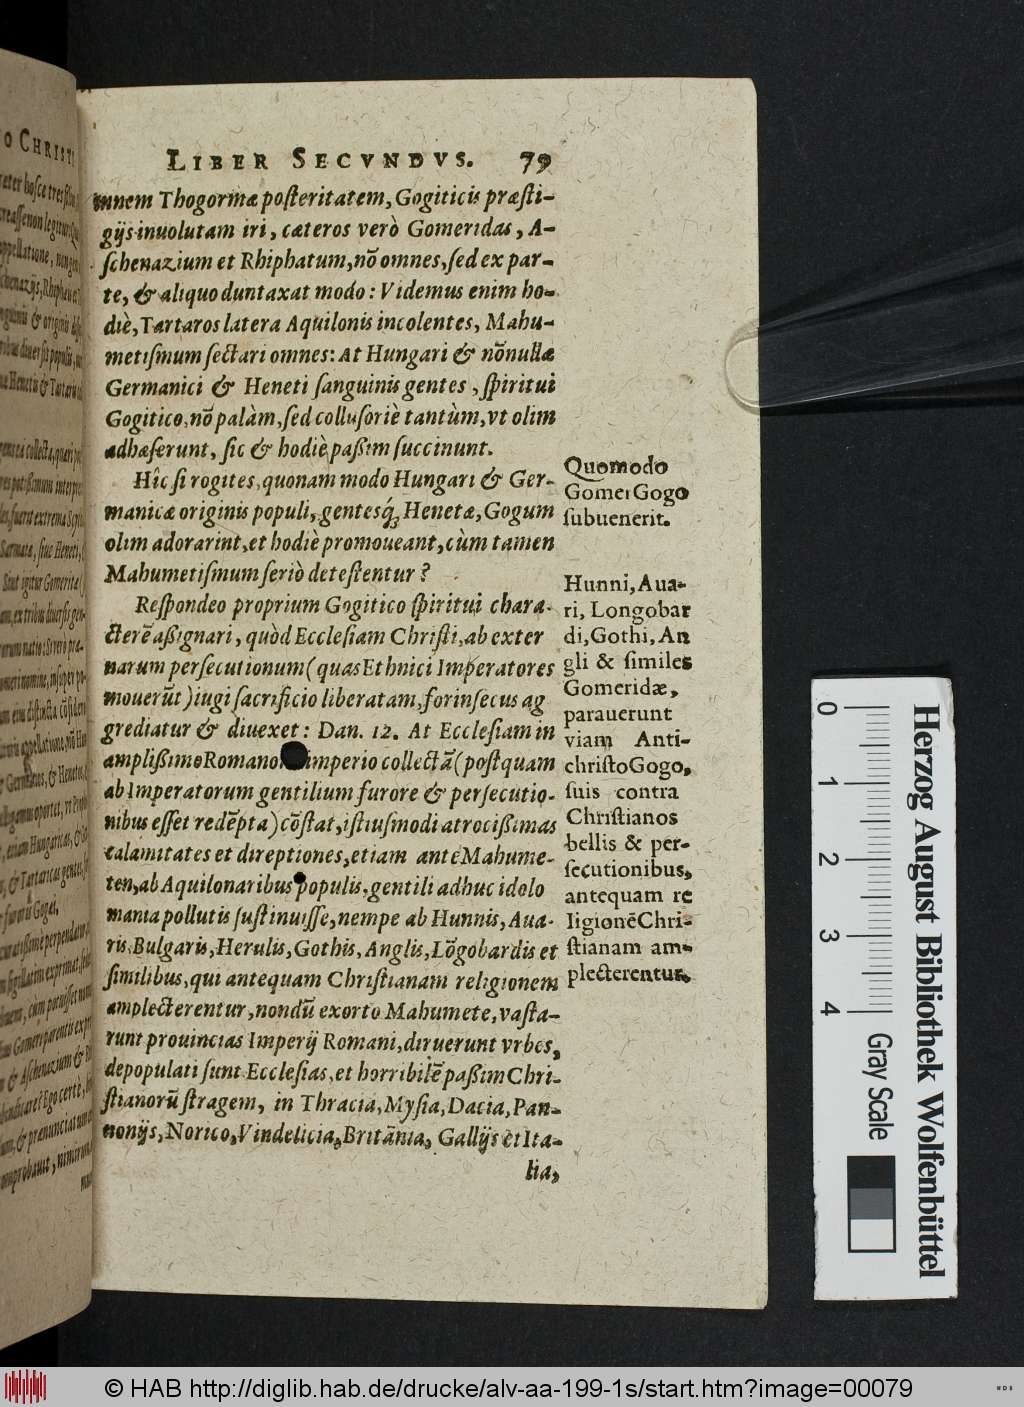 LIBER SECVNDVS. 79
omnem Thogormæ poſteritatem, Gogiticis præſti-
gijs inuolutam iri, cæteros verò Gomeridas, A-
ſchenazium et Rhiphatum, nō omnes, ſed ex par-
te, & aliquo duntaxat modo: Videmus enim ho-
diè, Tartaros latera Aquilonis incolentes, Mahu-
metiſmum ſectari omnes: At Hungari & nōnullæ
Germanici & Heneti ſanguinis gentes, ſpiritui
Gogitico, nō palàm, ſed colluſoriè tantùm, vt olim
adhæſerunt, ſic & hodiè paßim ſuccinunt.
Hîc ſi rogites, quonam modo Hungari & Ger-
manicæ originis populi, gentesq́; Henetæ, Gogum
olim adorarint, et hodiè promoueant, cùm tamen
Mahumetiſmum ſeriò deteſtentur?
Reſpondeo proprium Gogitico ſpiritui chara-
cterē aßignari, quòd Eccleſiam Chriſti, ab exter
narum perſecutionum (quas Ethnici Imperatores
mouerūt) iugi ſacrificio liberatam, forinſecus ag
grediatur & diuexet: Dan. 12. At Eccleſiam in
amplißimo Romano imperio collectā (poſtquam
ab Imperatorum gentilium furore & perſecutio-
nibus eſſet redēpta) cōſtat, iſtiuſmodi atrocißimas
calamitates et direptiones, etiam ante Mahume-
ten, ab Aquilonaribus populis, gentili adhuc idolo
mania pollutis ſuſtinuiſſe, nempe ab Hunnis, Aua-
ris, Bulgaris, Herulis, Gothis, Anglis, Lōgobardis et
ſimilibus, qui antequam Chriſtianam religionem
amplecterentur, nondū exorto Mahumete, vaſta-
runt prouincias Imperij Romani, diruerunt vrbes,
depopulati ſunt Eccleſias, et horribilē paßim Chri-
ſtianorū ſtragem, in Thracia, Myſia, Dacia, Pan-
nonijs, Norico, Vindelicia, Britānia, Gallijs et Ita-
lia,
Quomodo
Gomer Gogo
ſubuenerit.
Hunni, Aua-
ri, Longobar
di, Gothi, An
gli & ſimiles
Gomeridæ,
parauerunt
viam Anti-
chriſto Gogo,
ſuis contra
Chriſtianos
bellis & per-
ſecutionibus,
antequam re
ligionē Chri-
ſtianam am-
plecterentur.
0 1 2 3 4
Herzog August Bibliothek Wolfenbüttel
Gray Scale
© HAB http://diglib.hab.de/drucke/alv-aa-199-1s/start.htm?image=00079